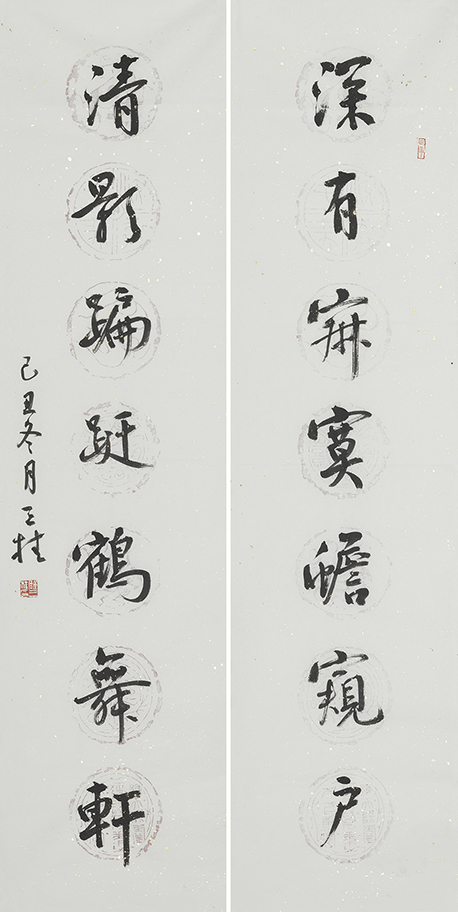 深有寂寞蟾窺户
清影蹁跹鶴舞軒
己丑冬月桂